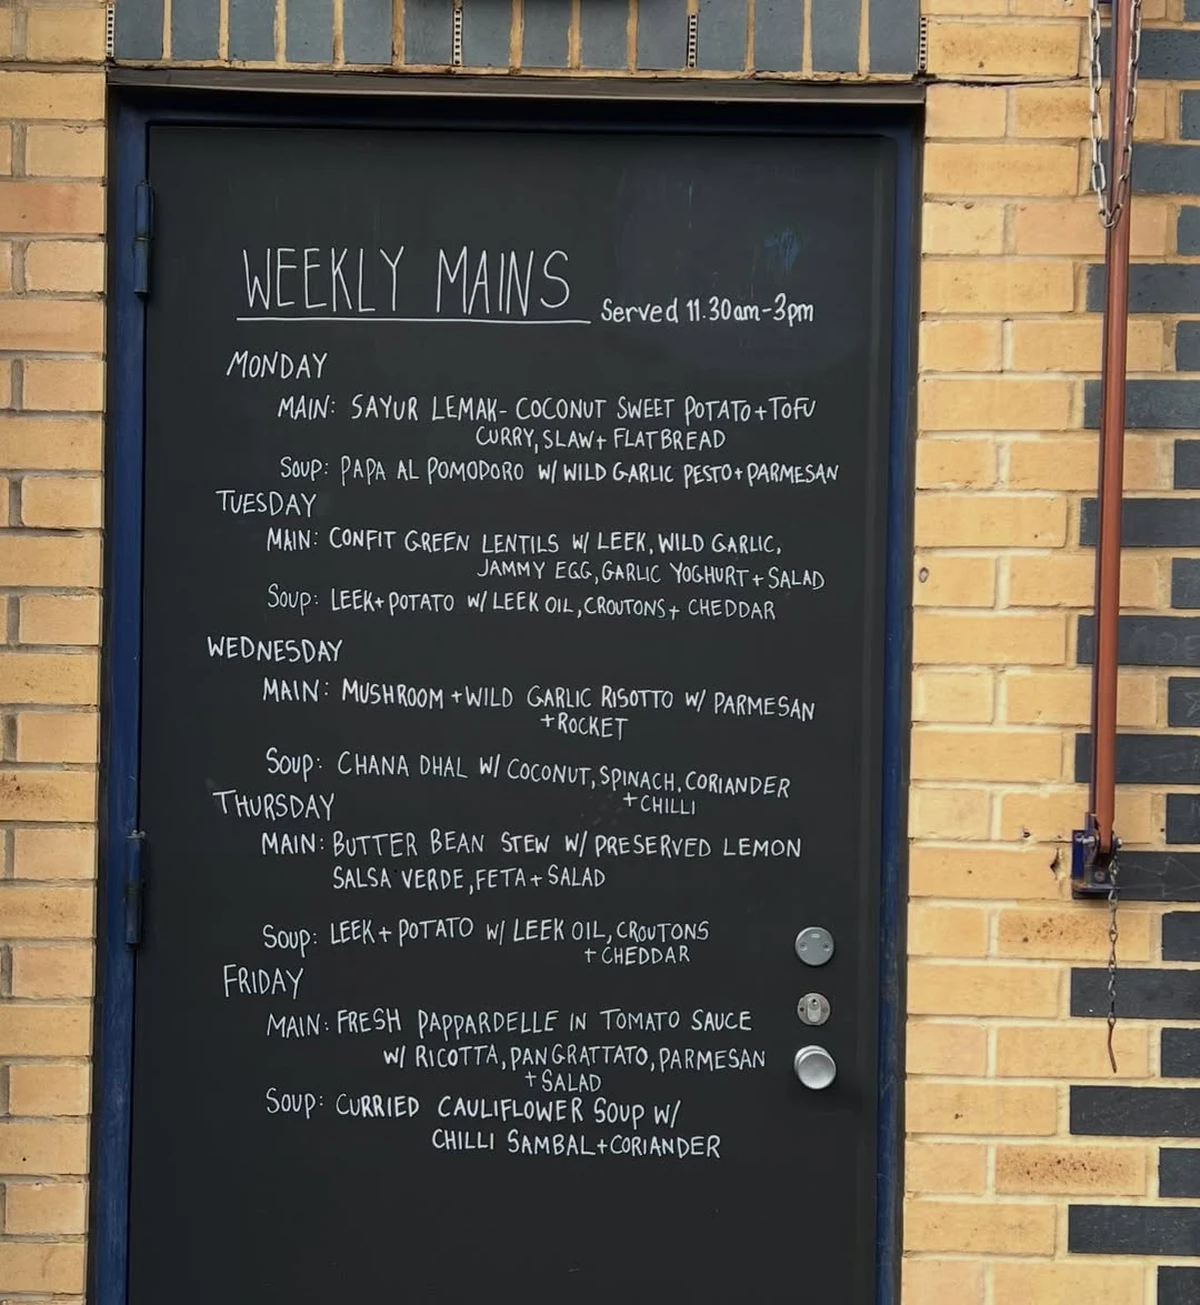 WEEKLY MAINS Served 11.30am-3pm
MONDAY
MAIN: SAYUR LEMAK- COCONUT SWEET POTATO+TOFU
CURRY, SLAW+ FLATBREAD
SOUP: PAPA AL POMODORO W/ WILD GARLIC PESTO+PARMESAN
TUESDAY
MAIN: CONFIT GREEN LENTILS W/ LEEK, WILD GARLIC,
JAMMY EGG, GARLIC YOGHURT + SALAD
SOUP: LEEK+POTATO W/ LEEK OIL, CROUTONS + CHEDDAR
WEDNESDAY
MAIN: MUSHROOM +WILD GARLIC RISOTTO W/ PARMESAN
+ROCKET
SOUP: CHANA DHAL W/ COCONUT, SPINACH, CORIANDER
+CHILLI
THURSDAY
MAIN: BUTTER BEAN STEW W/ PRESERVED LEMON
SALSA VERDE, FETA + SALAD
SOUP: LEEK + POTATO W/ LEEK OIL, CROUTONS
+ CHEDDAR
FRIDAY
MAIN: FRESH PAPPARDELLE IN TOMATO SAUCE
W/ RICOTTA, PANGRATTATO, PARMESAN
+SALAD
SOUP: CURRIED CAULIFLOWER SOUP W/
CHILLI SAMBAL+CORIANDER